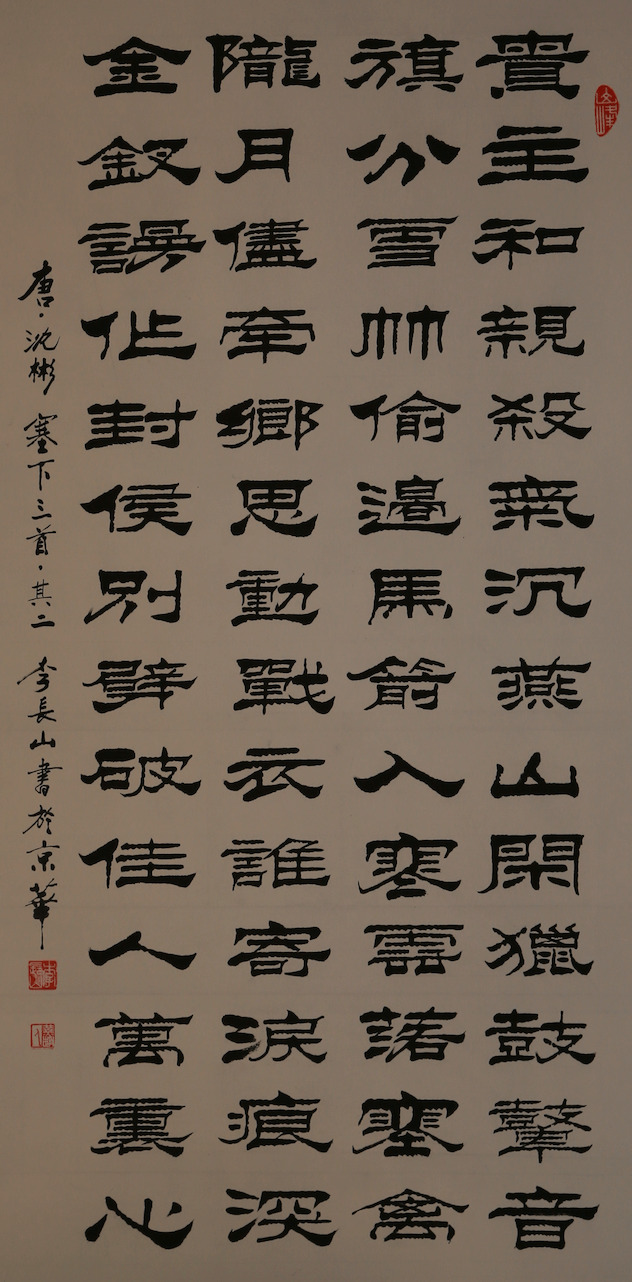 貴主和親殺氣沉燕山閑獵鼓鼙音
旗分雪艸偷邊馬箭入寒雲落塞禽
隴月儘牽鄉思動戰衣誰寄淚痕深
金釵誤作封侯別擘破佳人萬裏心
唐·沈彬 塞下三首·其二 李長山書於京華